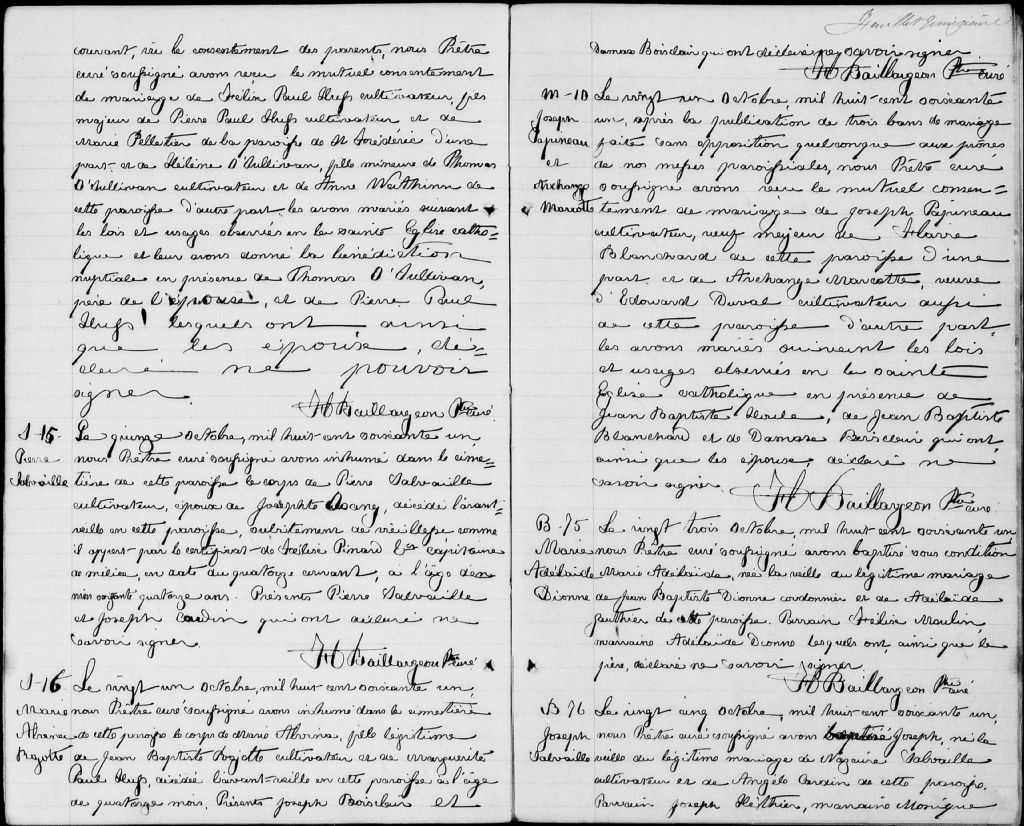 courant, vu le consentement des parents, nous Prêtre
curé soussigné avons recu le mutuel consentement
de mariage de Félix Paul Hufs cultivateur, fils
majeur de Pierre Paul Hufs cultivateur et de
Marie Pelletier de la paroisse de St Frédéric d'une
part et de Hélène O'Sullivan, fille mineure de Thomas
O'Sullivan cultivateur et de Anne de
cette paroisse d'autre part, les avons mariés suivant
les lois et usages observés en la sainte Eglise catho=
lique et leur avons donné la bénédiction
nuptiale en présence de Thomas O'Sullivan,
père de l'épouse, et de Pierre Paul
Hufs lesquels ont, ainsi
que les épouse, dé=
claré ne pouvoir
signer.
JH Baillargeon Ptre curé
S-15.
Pierre
Salvaille
Le quinze octobre, mil huit-cent soixante un
nous Prêtre curé soussigné avons inhumé dans le cime=
tière de cette paroisse le corps de Pierre Salvaille
cultivateur, époux de Josephte décédé l'avant-
veille en cette paroisse, subitement de vieillesse comme
il appert par le certificat de Félix Pinard Ecr capitaine
de milice, en date du quatorze courant, à l'âge de
soixante quatorze ans. Présents Pierre Salvaille
et Joseph Cardin qui ont déclaré ne
savoir signer.
JH Baillargeon Ptre curé
S-16
Marie
Alvina
Rajotte
Le vingt un octobre, mil huit-cent soixante un,
nous Prêtre curé soussigné avons inhumé dans le cimetière
de cette paroisse le corps de Marie Alvina, fille légitime
de Jean Baptiste Rajotte cultivateur et de Marguerite
Paul Hufs, décédée l'avant-veille en cette paroisse à l'âge
de quatorze mois. Présents Joseph Boisclair et
Feuillet
Damase Boisclair qui ont déclaré ne savoir signer
JH Baillargeon Ptre curé
M-10
Joseph
Papineau
et
Archange
Marcotte
Le vingt un octobre, mil huit-cent soixante
un, après la publication de trois bans de mariage
faite sans opposition quelconque aux prônes
de nos messes paroissiales, nous Prêtre curé
soussigné avons recu le mutuel consen=
tement de mariage de Joseph Papineau
cultivateur, veuf majeur de Flavie
Blanchard de cette paroisse d'une
part et de Archange Marcotte, veuve
d'Edouard Duval cultivateur aussi
de cette paroisse d'autre part,
les avons mariés suivant les lois
et usages observés en la sainte
Eglise catholique en présence de
Jean Baptiste de Jean Baptiste
Blanchard et de Damase Boisclair qui ont,
ainsi que les épouse, déclaré ne
savoir signer.
JH Baillargeon Ptre curé
B-75
Marie
Adélaïde
Dionne
Le vingt trois octobre, mil huit cent soixante un,
nous Prêtre curé soussigné avons baptisé sous condition
Marie Adélaïde, née la veille du légitime mariage
de Jean Baptiste Dionne cordonnier et de Adélaïde
Gauthier de cette paroisse. Parrain Félix Moulin,
marraine Adélaïde Dionne lesquels ont, ainsi que le
père, déclaré ne savoir signer.
JH Baillargeon Ptre curé
B 76
Joseph
Salvaille
Le vingt cinq octobre, mil huit cent soixante un,
nous Prêtre curé soussigné avons baptisé Joseph, né la
veille du légitime mariage de Nazaire Salvaille
cultivateur et de Angele Cardin de cette paroisse.
Parrain Joseph marraine Monique